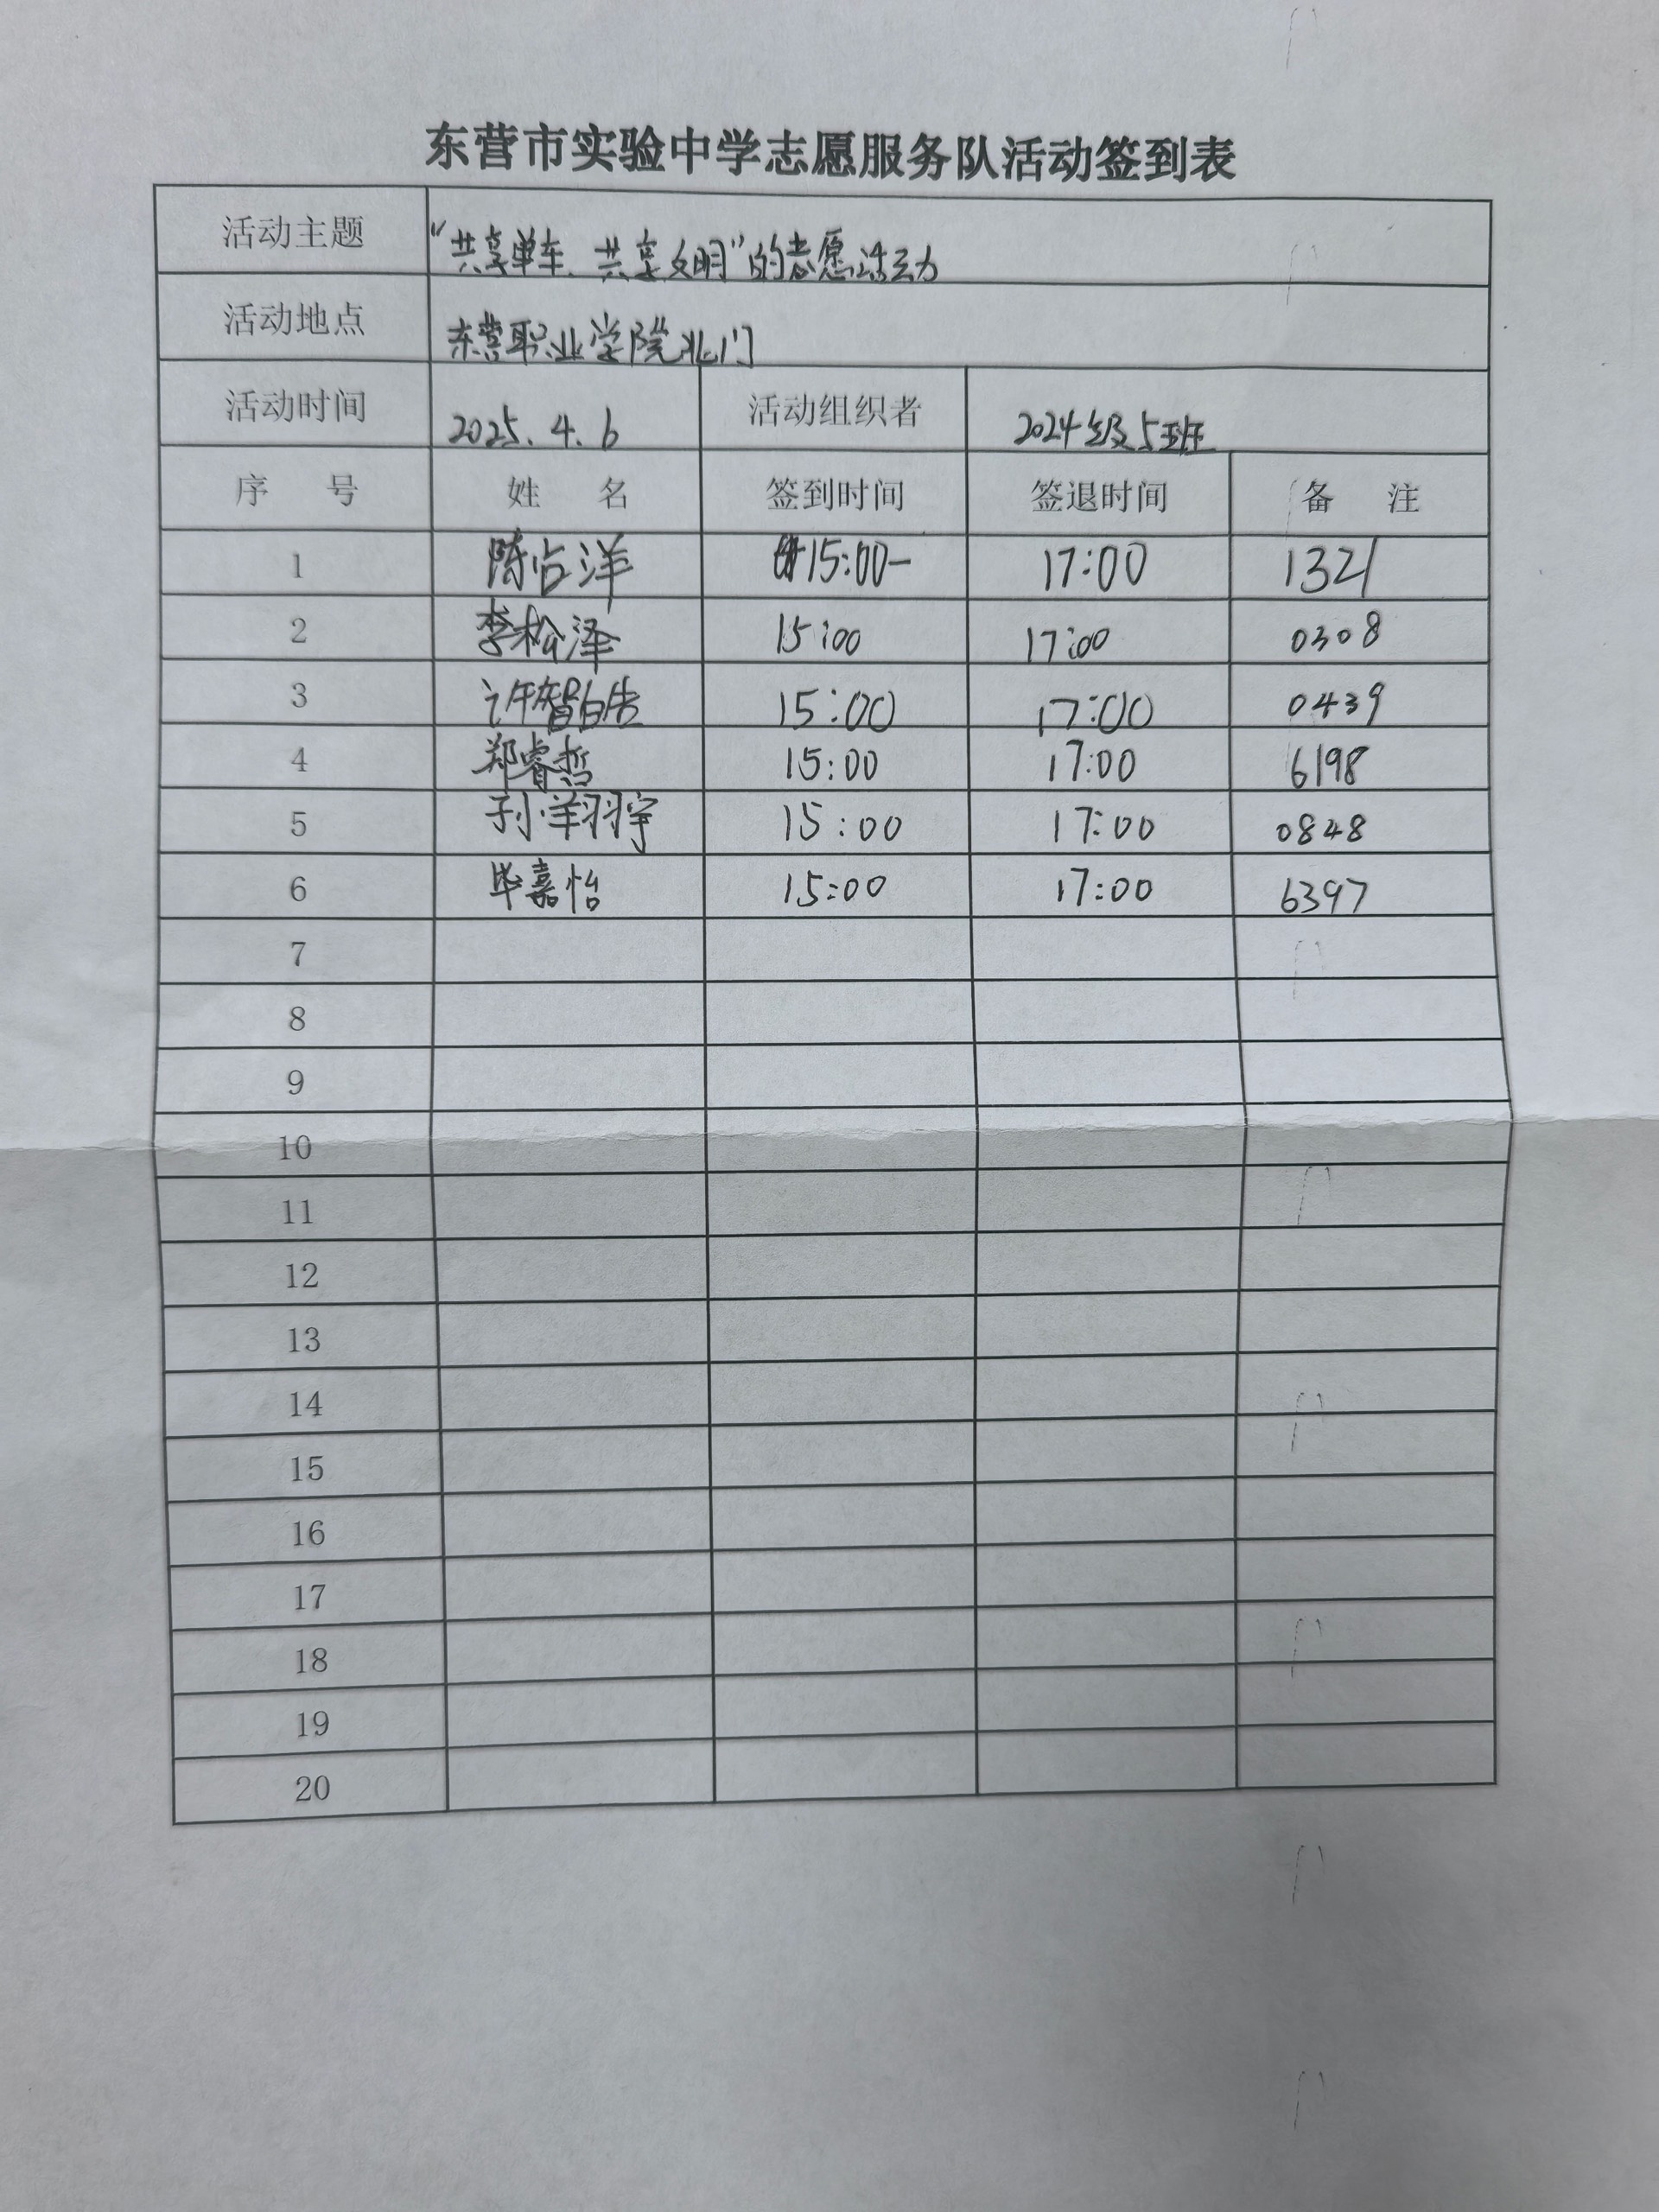 东营市实验中学志愿服务队活动签到表
活动主题 “共享单车、共享文明”的志愿活动
活动地点 东营职业学院北门
活动时间 2025.4.6 活动组织者 2024级5班
序 号 姓 名 签到时间 签退时间 备 注
1 陈占洋 15:00- 17:00 1321
2 李松泽 15:00 17:00 0308
3 许智皓 15:00 17:00 0439
4 郑睿哲 15:00 17:00 6198
5 孙翔宇 15:00 17:00 0848
6 毕嘉怡 15:00 17:00 6397
7
8
9
10
11
12
13
14
15
16
17
18
19
20